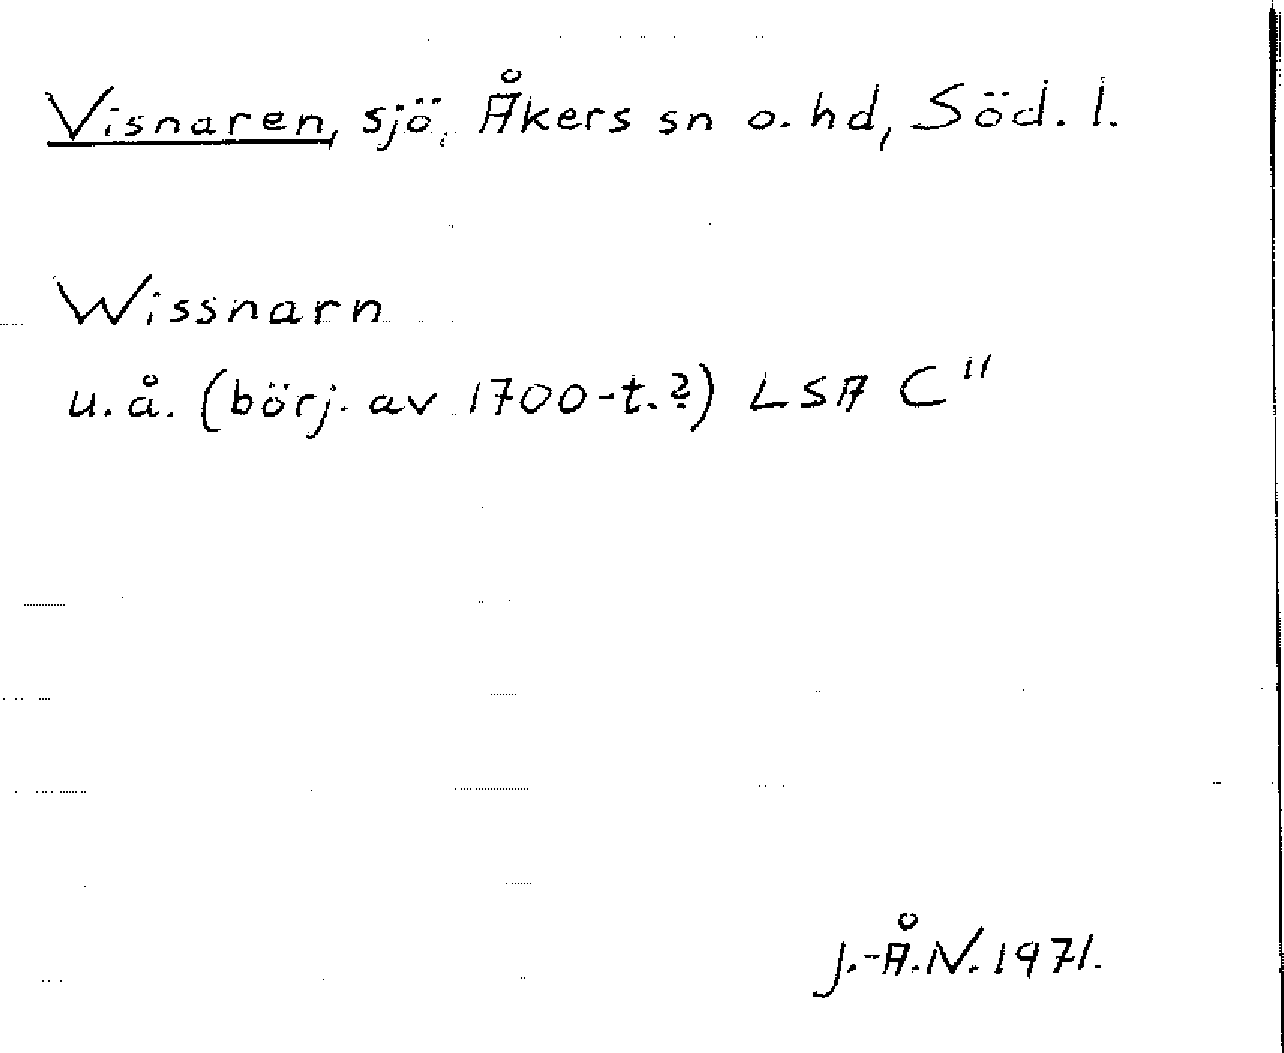 Visnaren, sjö, Åkers sn o. hd, Söd. l.
Wissnarn
u.å. (börj. av 1700-t.?) LSA C"
J.-Å.N. 1971.